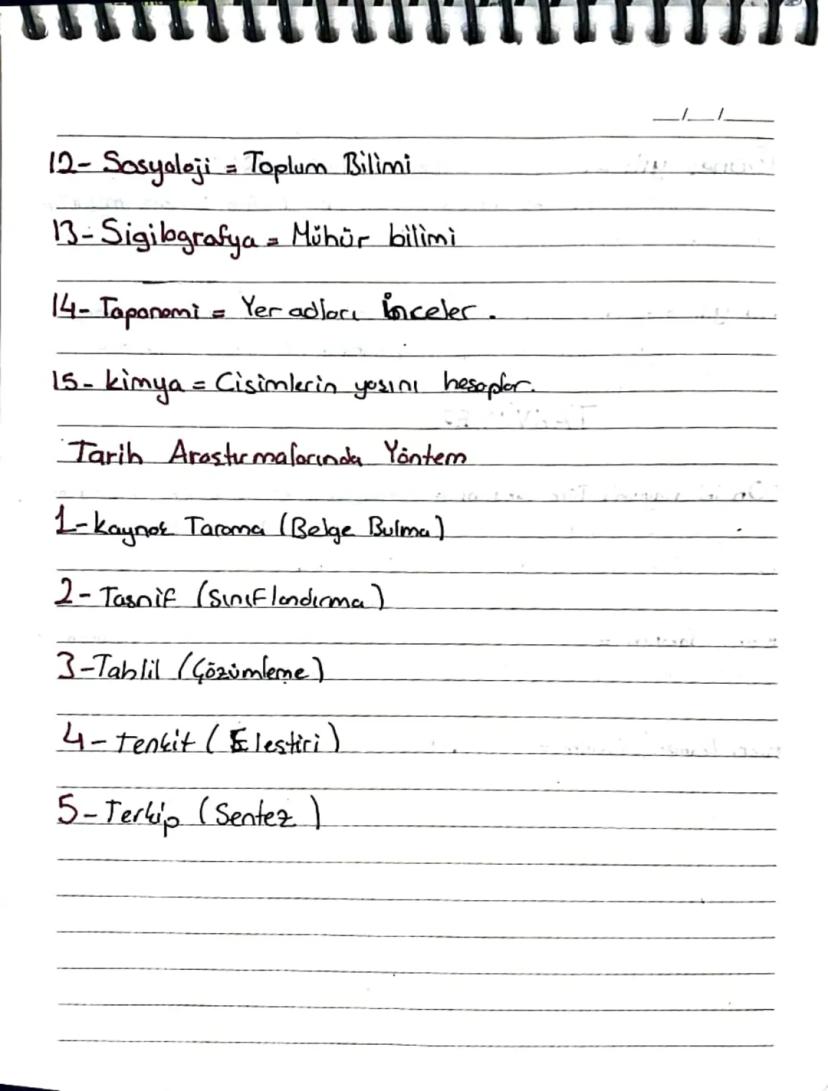 __/__/____
12- Sosyoloji = Toplum Bilimi
13- Sigilografya = Mühür bilimi
14- Toponomi = Yer adları inceler.
15- kimya = Cisimlerin yaşını hesaplar.
Tarih Araştırmalarında Yöntem
1- kaynak Tarama (Belge Bulma)
2- Tasnif (Sınıflandırma)
3- Tahlil (Çözümleme)
4- tenkit (Eleştiri)
5- Terkip (Sentez)